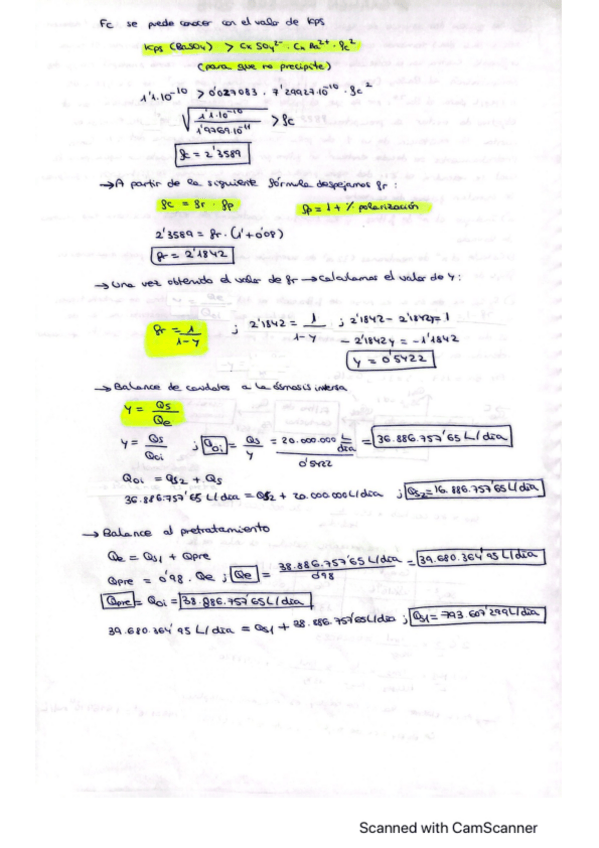 Fc se puede conocer con el valor de Kps
Kps (BaSO4) > CR SO4²⁻ · CR Ba²⁺ · fc²
(para que no precipite)
1'1·10⁻¹⁰ > 0'027083 · 7'29927·10⁻¹⁰ · fc²
√(1'1·10⁻¹⁰ / 1'9769·10⁻¹¹) > fc
fc = 2'3589
→ A partir de la siguiente fórmula despejamos fr :
fc = fr · fp    fp = 1 + % polarización
2'3589 = fr · (1' + 0'08)
fr = 2'1842
→ Una vez obtenido el valor de fr → Calculamos el valor de Y :
fr = 1/(1-Y) ; 2'1842 = 1/(1-Y) ; 2'1842 - 2'1842Y = 1
- 2'1842Y = -1'1842
Y = 0'5422
→ Balance de caudales a la ósmosis inversa
Y = Qs/Qe
Y = Qs/Qoi ; Qoi = Qs/Y = 20.000.000 L/día / 0'5422 = 36.886.757'65 L/día
Qoi = Qs2 + Qs
36.886.757'65 L/día = Qs2 + 20.000.000 L/día ; Qs2 = 16.886.757'65 L/día
→ Balance al pretratamiento
Qe = Qs1 + Qpre
Qpre = 0'98 · Qe ; Qe = 38.886.757'65 L/día / 0'98 = 39.680.364'95 L/día
Qpre = Qoi = 38.886.757'65 L/día
39.680.364'95 L/día = Qs1 + 38.886.757'65 L/día ; Qs1 = 793 607'299 L/día
Scanned with CamScanner